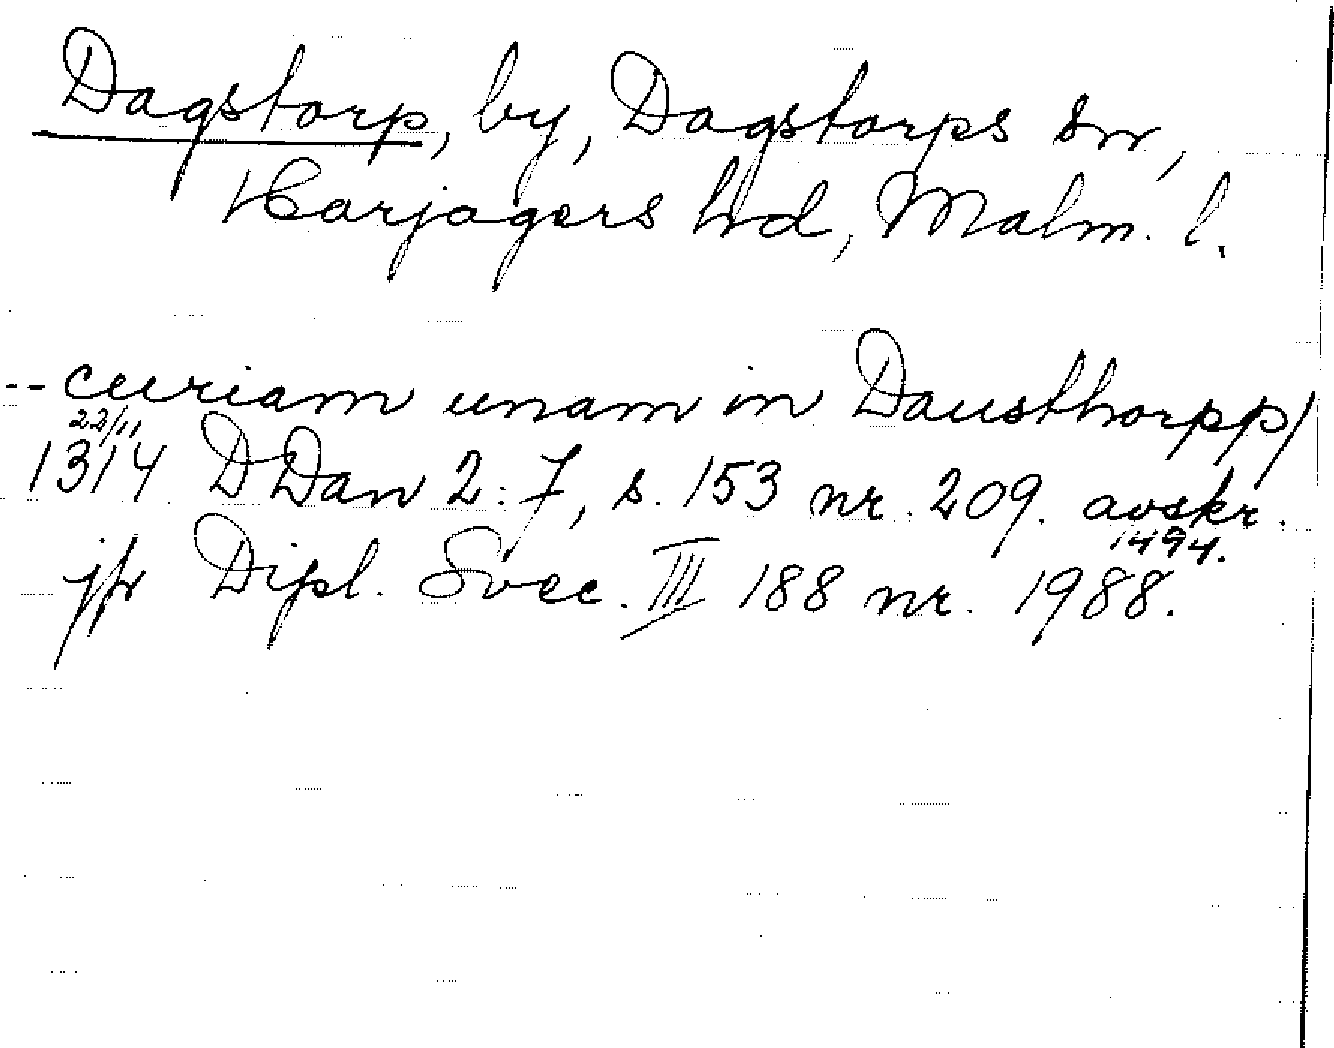 Dagstorp, by, Dagstorps sn,
Harjagers hd, Malm. l.
-- curiam unam in Dausthorpp/
22/11
1314 DDan 2:7, s. 153 nr. 209. avskr.
1494.
jfr Dipl. Svec. III 188 nr. 1988.